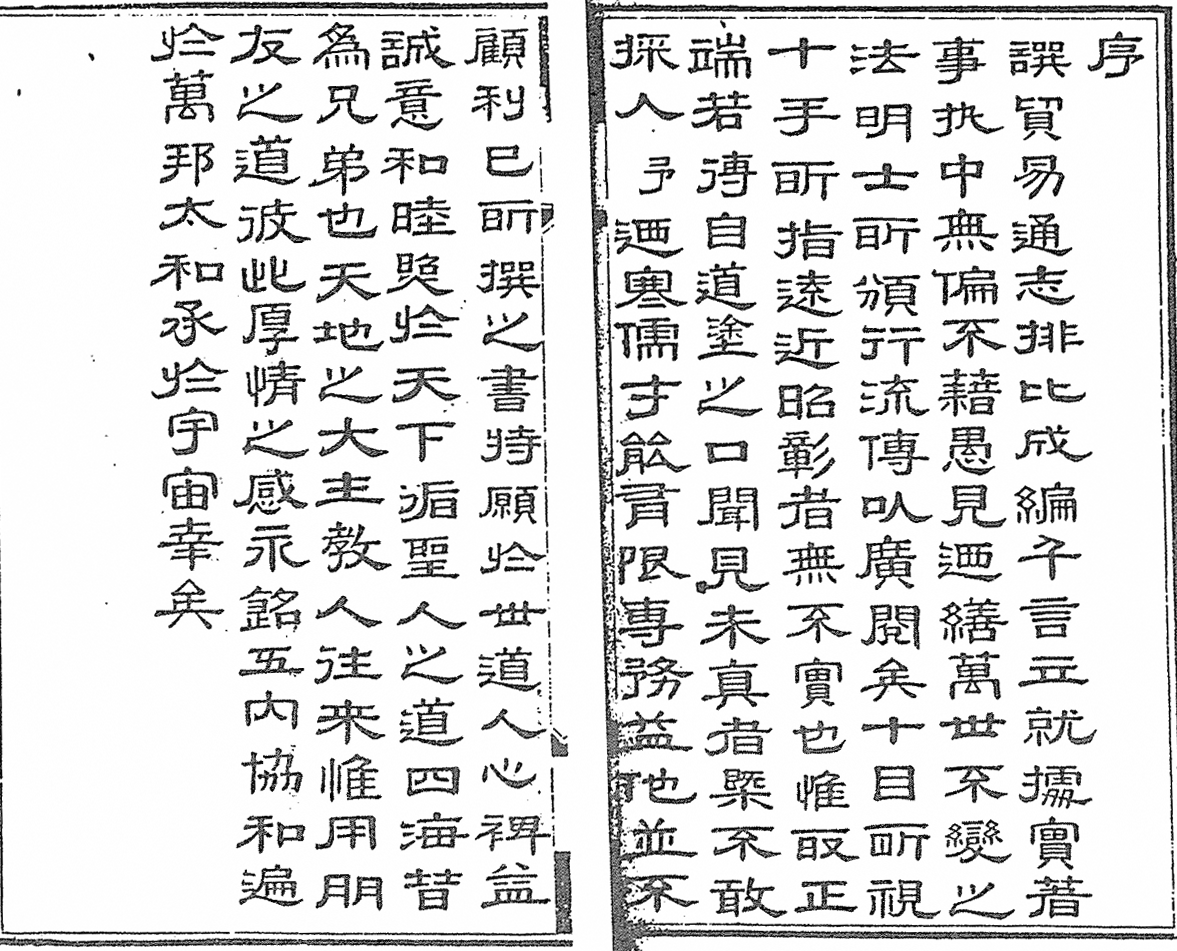 序
譔貿易通志排比成編千言立就據實著
事执中無偏不藉愚見迺繕萬世不變之
法明士所頒行流傳以廣閱矣十目所視
十手所指遠近昭彰者無不實也惟取正
端若得自道塗之口聞見未真者槩不敢
採人予迺寒儒才能有限專務益他並不
顧利已所撰之書特願於世道人心裨益
誠意和睦覬於天下诟聖人之道四海昔
為兄弟也天地之大主教人往來惟用朋
友之道彼此厚情之感永銘五內協和遍
於萬邦太和承於宇宙幸矣